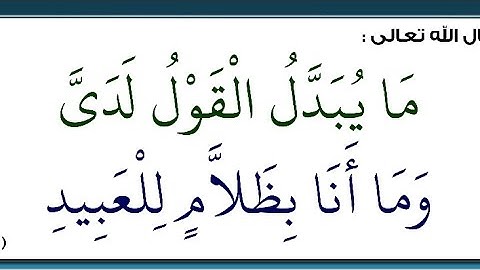 ال الله تعالى :
مَا يُبَدَّلُ الْقَوْلُ لَدَىَّ
وَمَا أَنَا بِظَلاَّمٍ لِلْعَبِيدِ
)